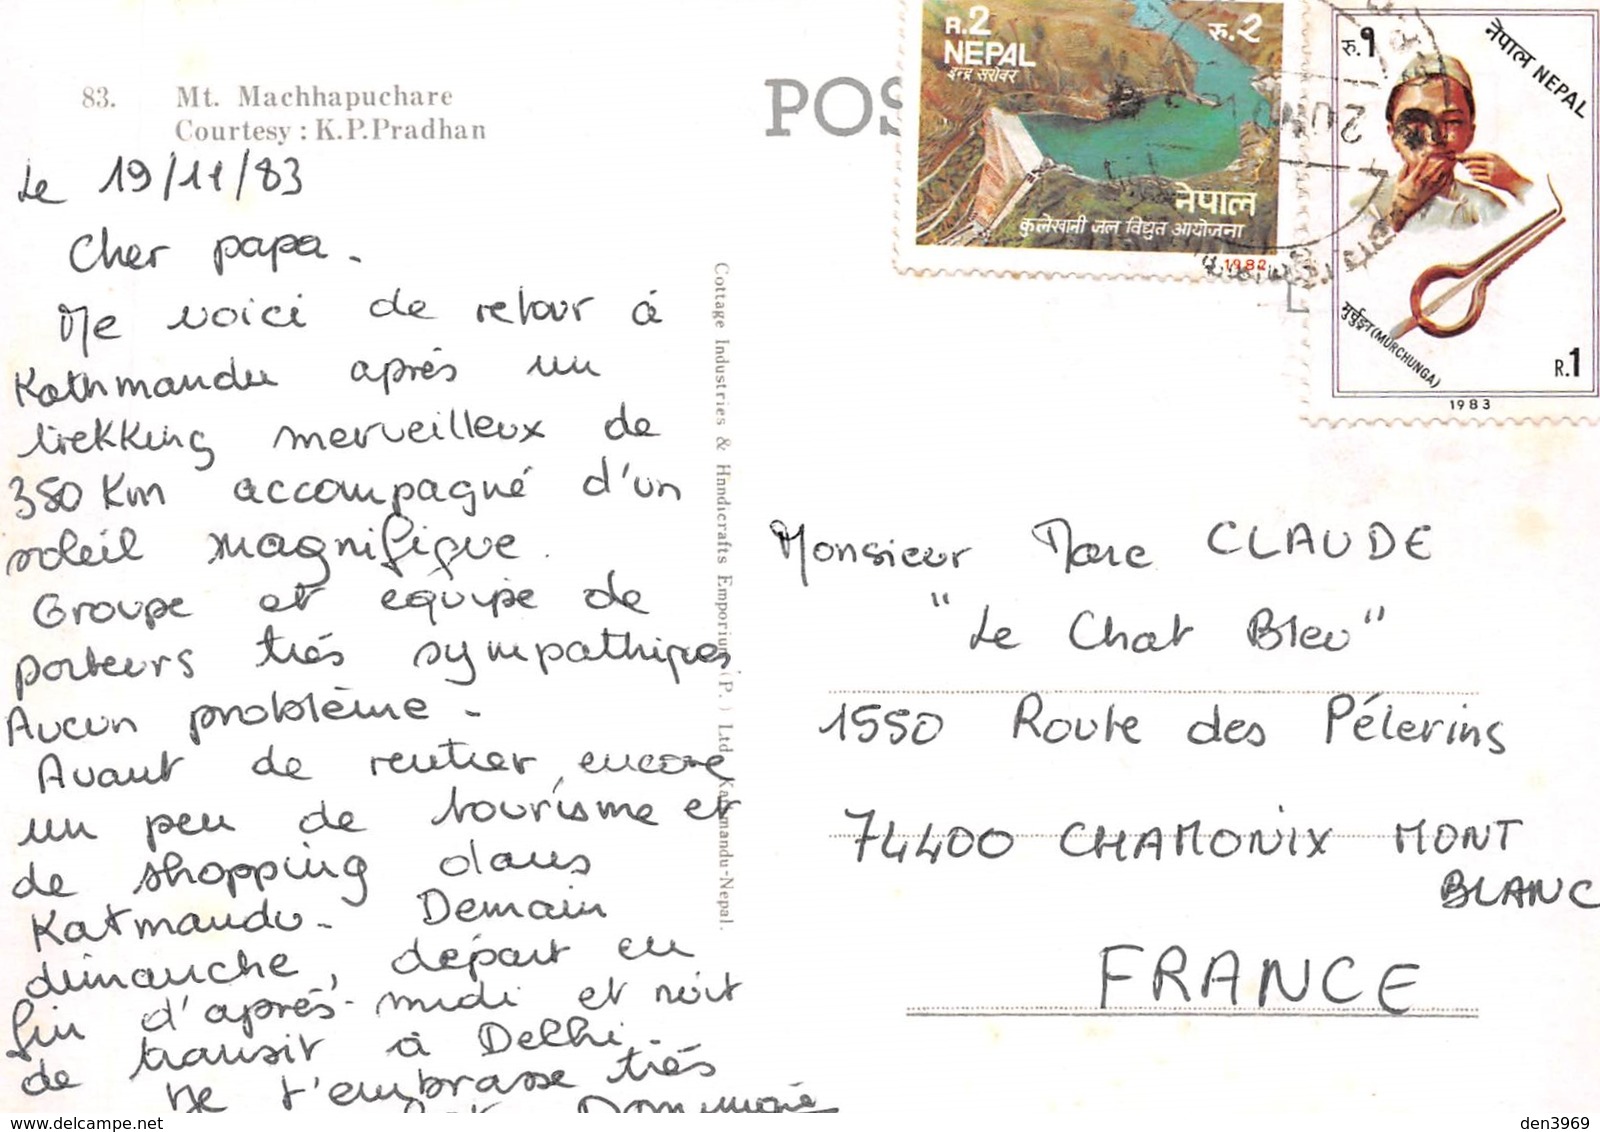 83. Mt. Machhapuchare
Courtesy : K.P.Pradhan
Le 19/11/83
Cher papa.
Me voici de retour à
Kathmandu après un
trekking merveilleux de
350 Km accompagné d'un
soleil magnifique.
Groupe et équipe de
porteurs très sympathiques
Aucun problème.
Avant de rentrer encore
un peu de tourisme et
de shopping dans
Katmandu. Demain
dimanche, départ en
fin d'après-midi et nuit
de transit à Delhi.
Je t'embrasse très
Dominique
Cottage Industries & Handicrafts Emporium (P.) Ltd. Katmandu-Nepal.
POS
R.2 रु.२
NEPAL
इन्द्र सरोवर
नेपाल
कुलेखानी जल विद्युत आयोजना
1982
रु.१
नेपाल NEPAL
मुर्चुङ्गा (MURCHUNGA)
R.1
1983
Monsieur Marc CLAUDE
"Le Chat Bleu"
1550 Route des Pélerins
74400 CHAMONIX MONT
BLANC
FRANCE
www.delcampe.net
den3969